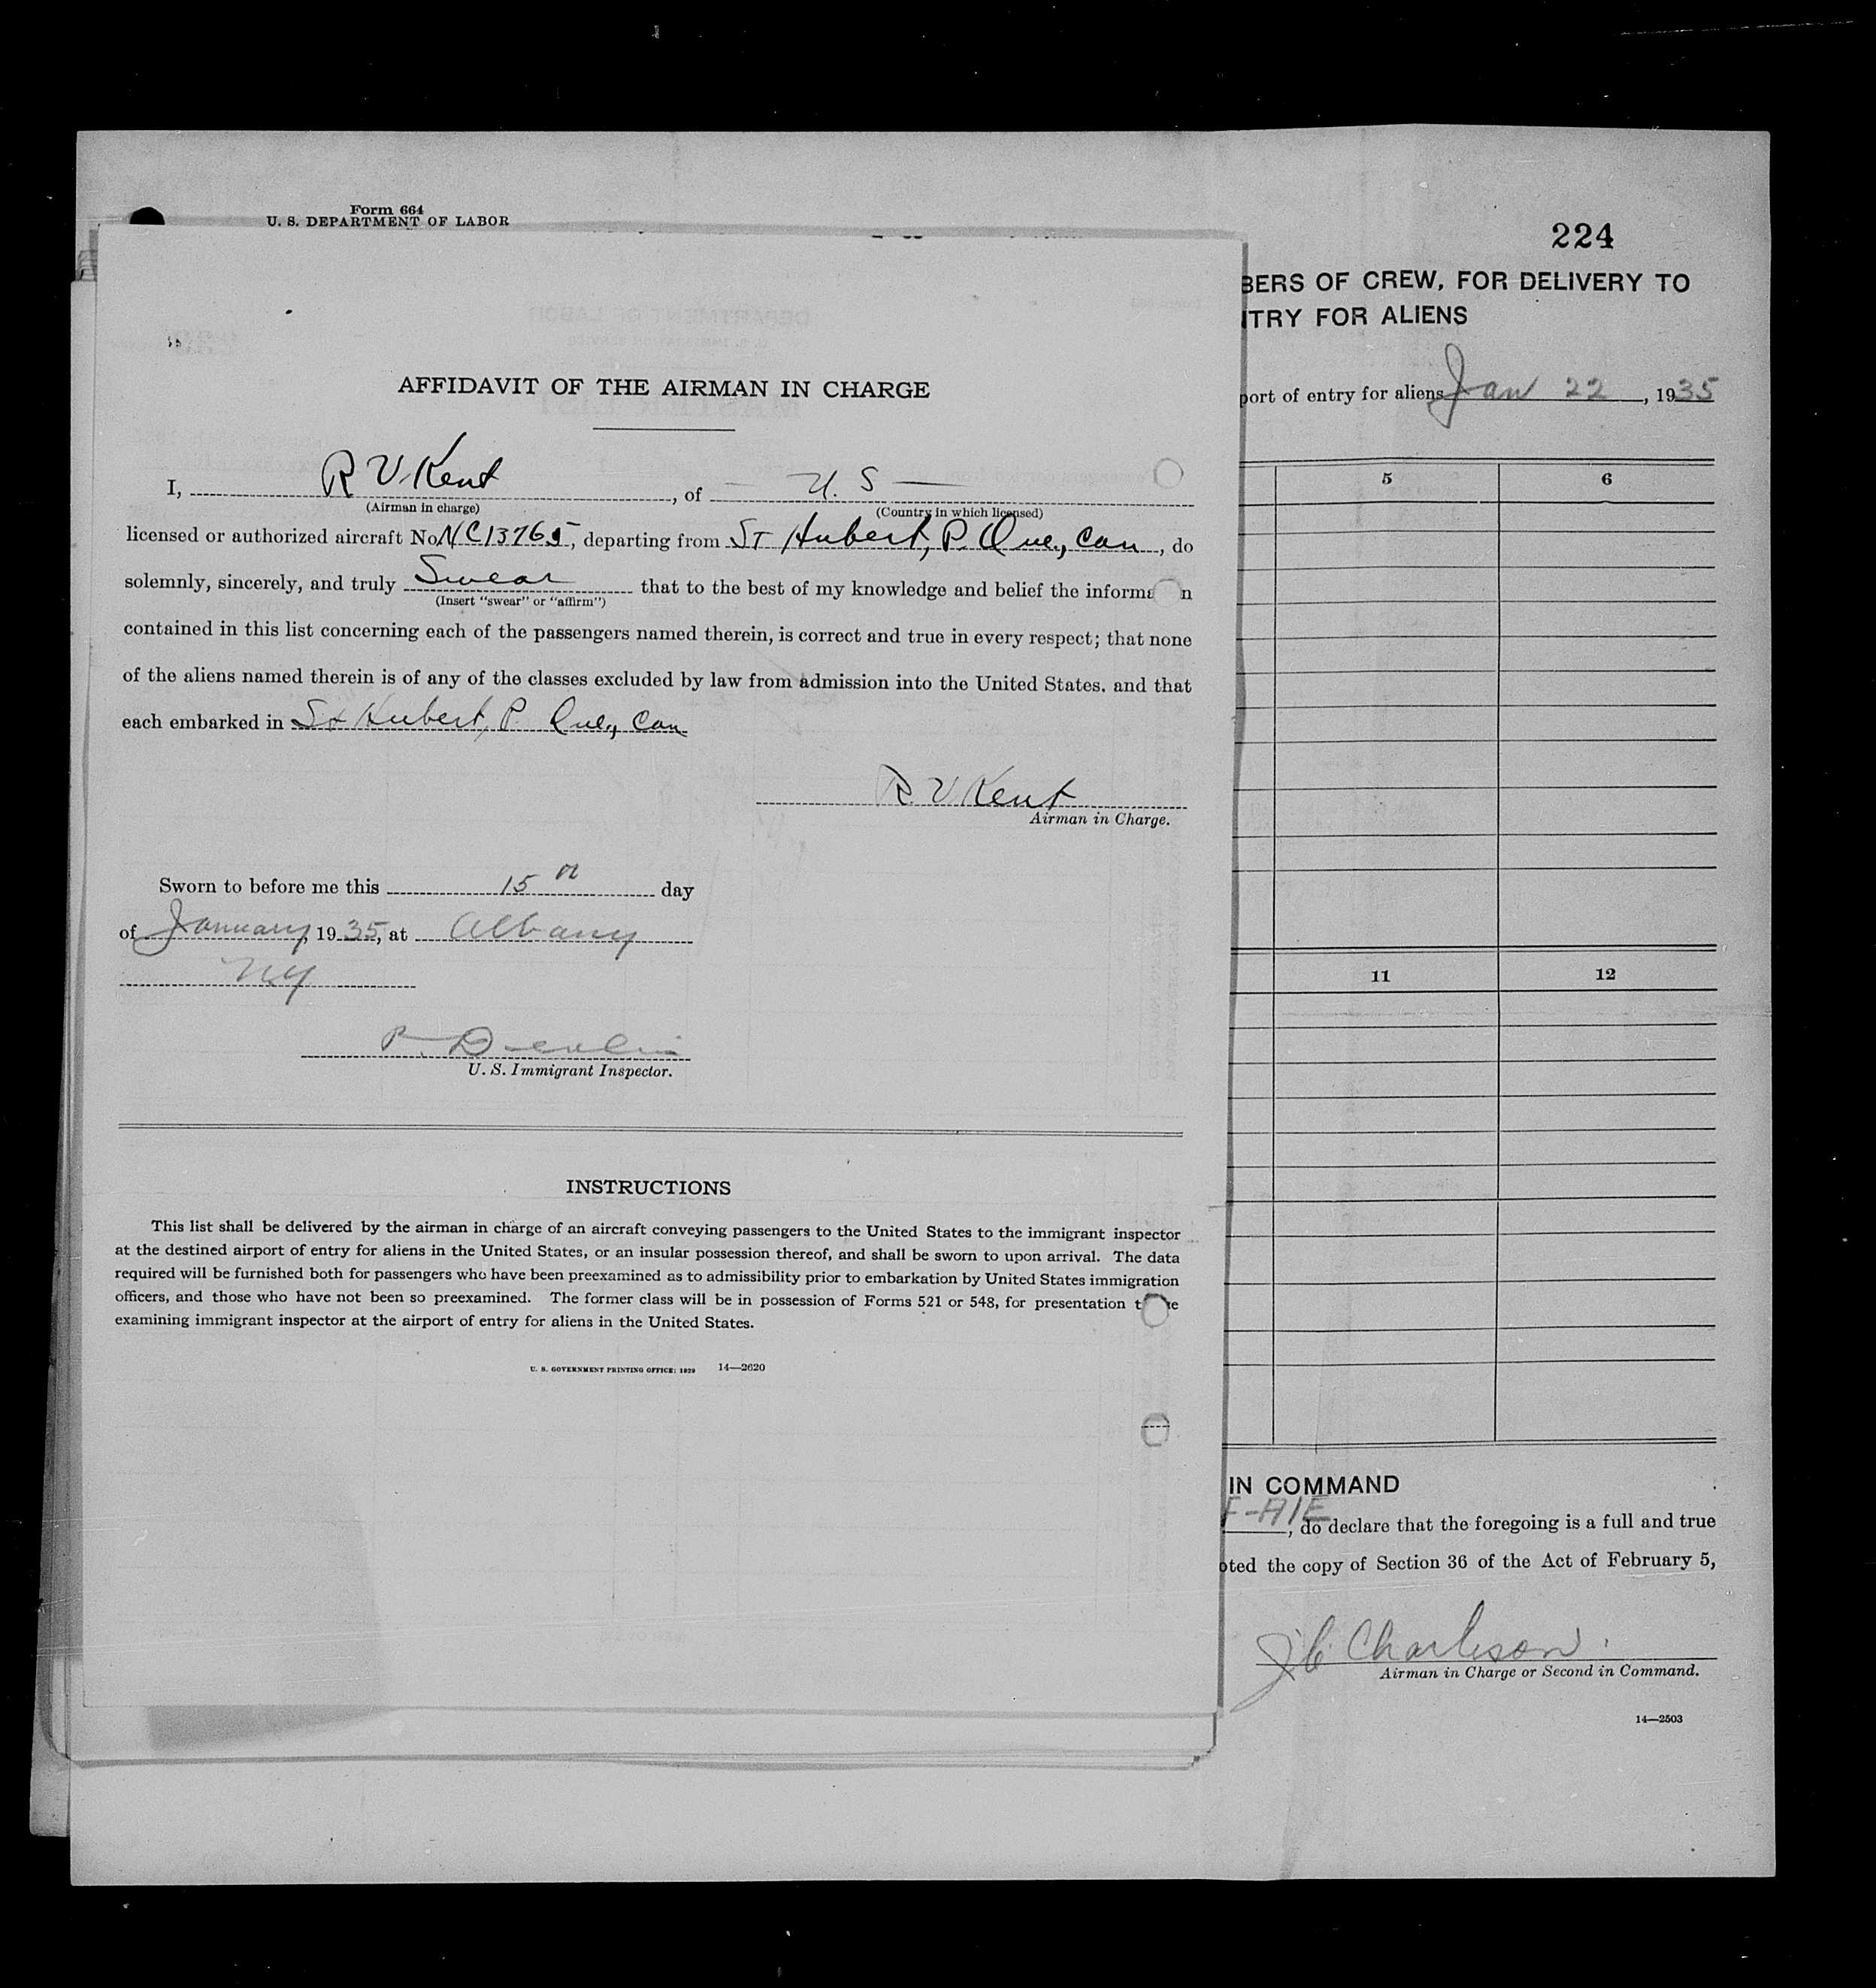 Form 664
U. S. DEPARTMENT OF LABOR
AFFIDAVIT OF THE AIRMAN IN CHARGE
I, R V. Kent, of U. S
(Airman in charge) (Country in which licensed)
licensed or authorized aircraft No. NC13765, departing from St Hubert, P. Que., Can, do
solemnly, sincerely, and truly Swear that to the best of my knowledge and belief the informa n
(Insert "swear" or "affirm")
contained in this list concerning each of the passengers named therein, is correct and true in every respect; that none
of the aliens named therein is of any of the classes excluded by law from admission into the United States, and that
each embarked in St Hubert, P. Que., Can
R. V. Kent
Airman in Charge.
Sworn to before me this 15 th day
of January, 1935, at Albany
NY
P. Devlin
U. S. Immigrant Inspector.
INSTRUCTIONS
This list shall be delivered by the airman in charge of an aircraft conveying passengers to the United States to the immigrant inspector
at the destined airport of entry for aliens in the United States, or an insular possession thereof, and shall be sworn to upon arrival. The data
required will be furnished both for passengers who have been preexamined as to admissibility prior to embarkation by United States immigration
officers, and those who have not been so preexamined. The former class will be in possession of Forms 521 or 548, for presentation t e
examining immigrant inspector at the airport of entry for aliens in the United States.
U. S. GOVERNMENT PRINTING OFFICE: 1929 14—2620
224
BERS OF CREW, FOR DELIVERY TO
TRY FOR ALIENS
port of entry for aliens Jan 22, 1935
5 6
11 12
IN COMMAND
F-AIE, do declare that the foregoing is a full and true
oted the copy of Section 36 of the Act of February 5,
J C Charleson.
Airman in Charge or Second in Command.
14—2503